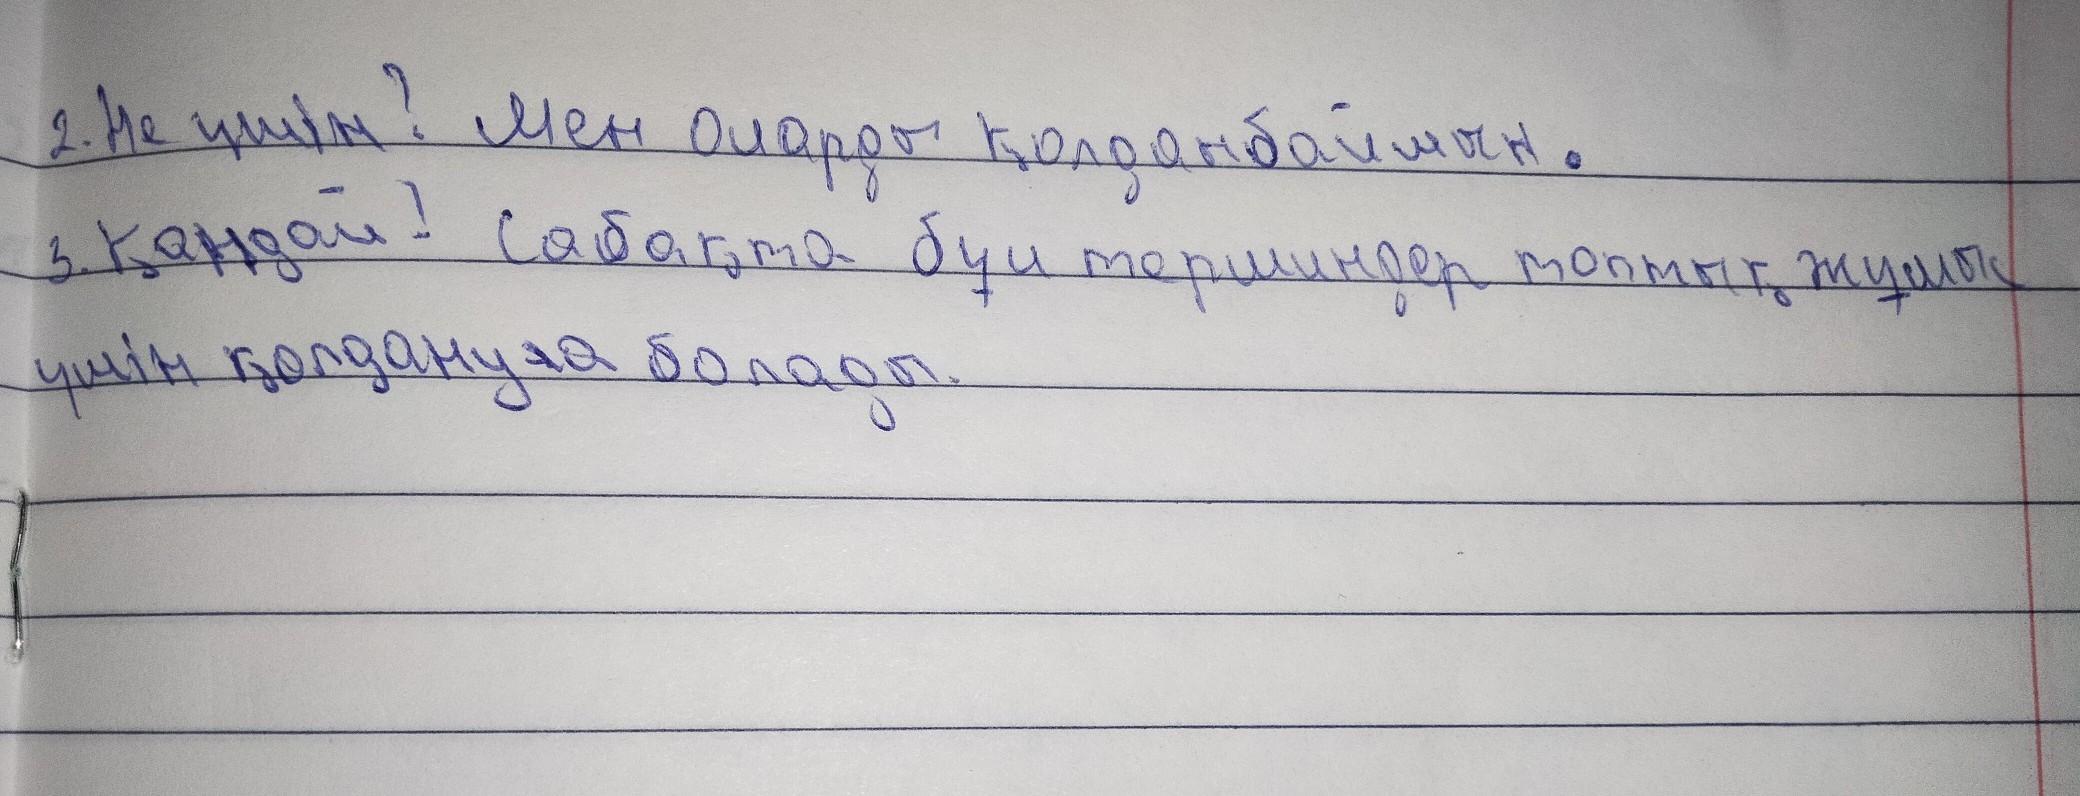 2. Не үшін? Мен оларды қолданбаймын.
3. Қандай? Сабақта бұл терминдер топтық жұмыс
үшін қолдануға болады.